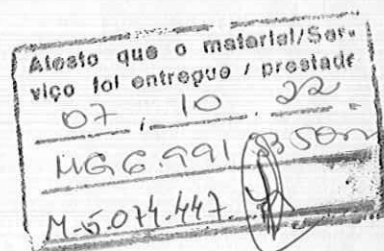 Atesto que o material/Ser-
viço foi entregue / prestado
07 / 10 / 22
MG 6.991
M-5.074.447